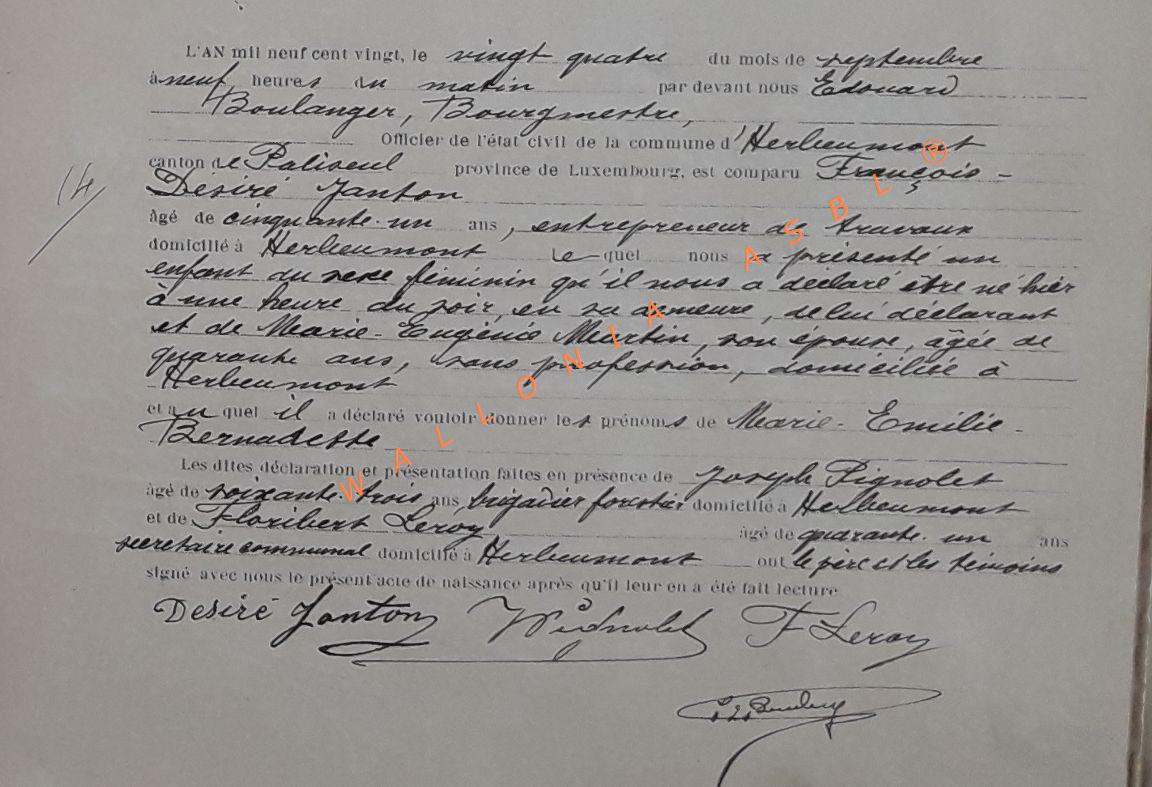 L'AN mil neuf cent vingt, le vingt quatre du mois de septembre
à neuf heures du matin par devant nous Edouard
Boulanger, Bourgmestre,
Officier de l'état civil de la commune d'Herbeumont
canton de Paliseul province de Luxembourg, est comparu François-
Désiré Janton
14
âgé de cinquante-un ans, entrepreneur de travaux
domicilié à Herbeumont le quel nous a présenté un
enfant du sexe féminin qu'il nous a déclaré être né hier
à une heure du soir, en sa demeure, de lui déclarant
et de Marie-Eugénie Martin, son épouse, âgée de
quarante ans, sans profession, domiciliée à
Herbeumont
et au quel il a déclaré vouloir donner les prénoms de Marie-Emilie-
Bernadette
Les dites déclaration et présentation faites en présence de Joseph Pignolet
âgé de soixante-trois ans, brigadier forestier domicilié à Herbeumont
et de Floribert Leroy âgé de quarante-un ans
secrétaire communal domicilié à Herbeumont ont le père et les témoins
signé avec nous le présent acte de naissance après qu'il leur en a été fait lecture
Désiré Janton Pignolet F Leroy
WALLONIA ASBL ®